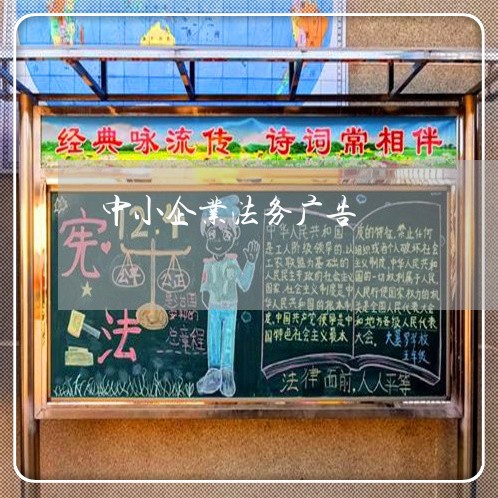 经典咏流传 诗词常相伴
中小企業法务广告
宪法
12.4
公平 公正
总章程
中华人民共和国
是工人阶级领导的,以
工农联盟为基础的
人民民主专政的社会主义
国家,社会主义制度是中
华人民共和国的根本制
度,中国共产党领导是中
国特色社会主义最本
质的特征,禁止任何
组织或者个人破坏社会
主义制度,中华人民共和
国的一切权利属于人民,
人民行使国家权力的机
关是全国人民代表大会
和地方各级人民代表
大会.
五年级
法律面前,人人平等